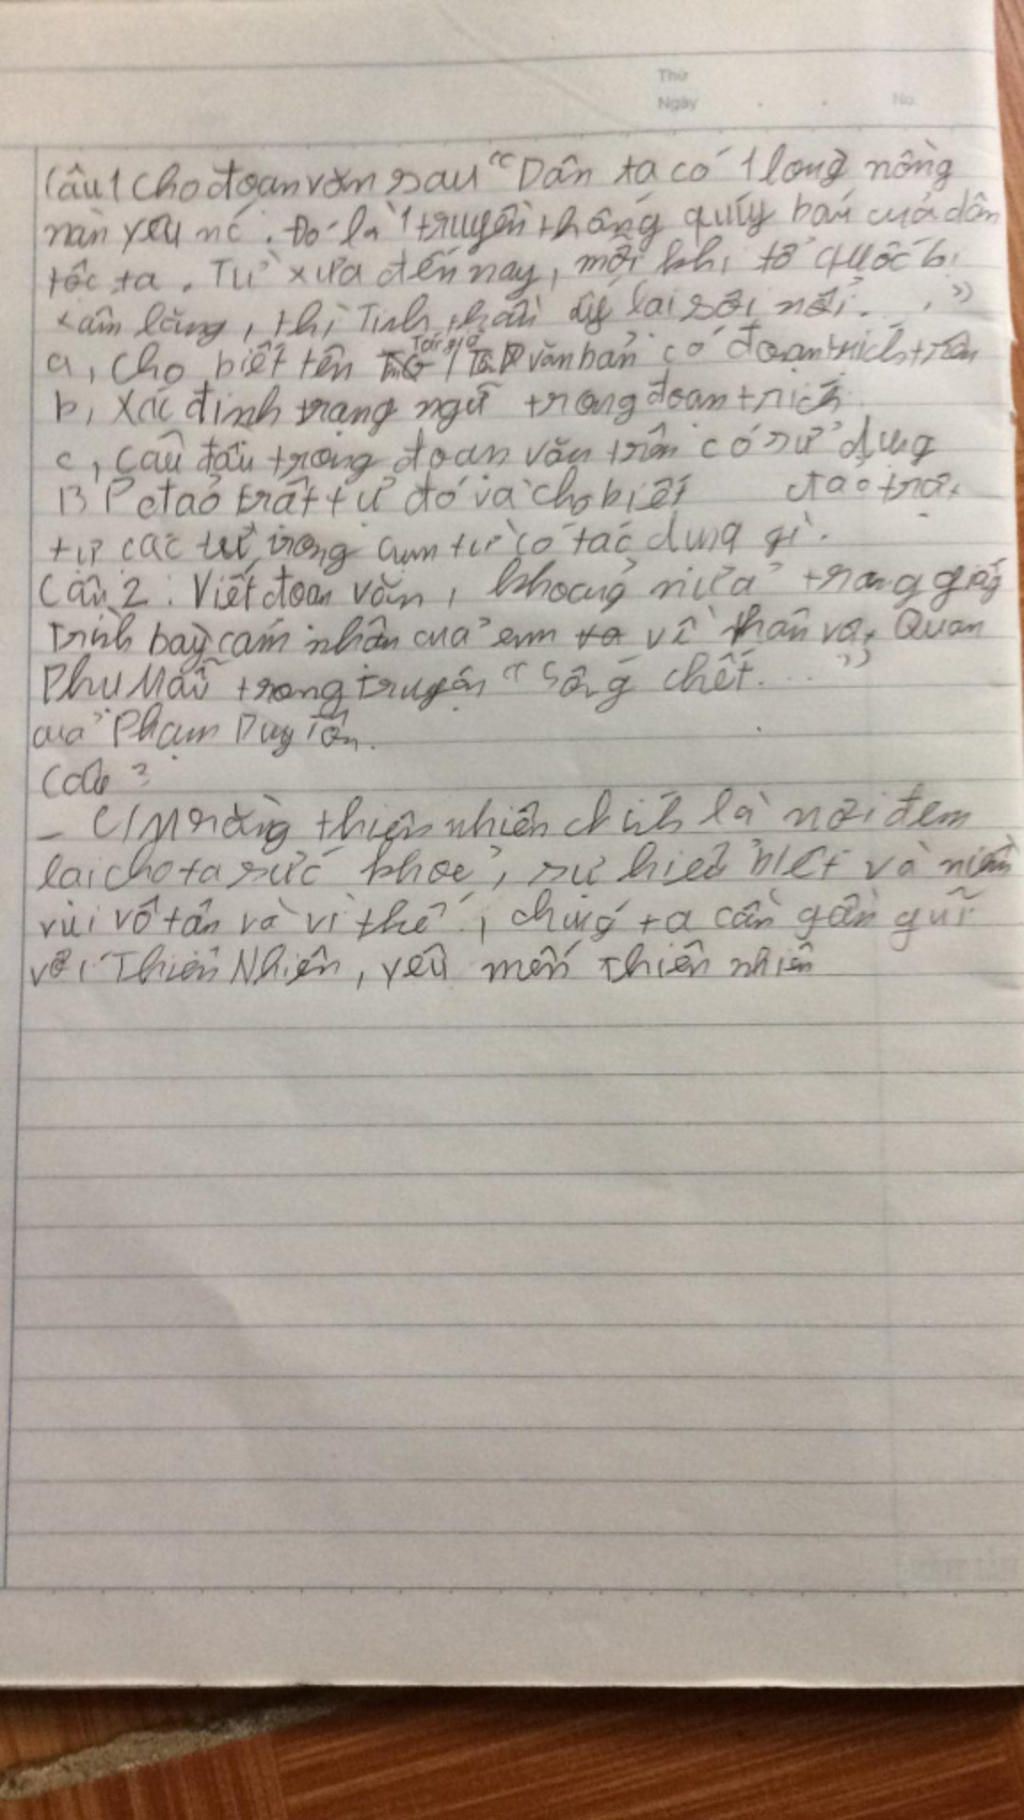 Thứ
Ngày . . No.
Câu 1 Cho đoạn văn sau "Dân ta có 1 lòng nồng
nàn yêu nc. Đó là 1 truyền thống quý báu của dân
tộc ta. Từ xưa đến nay, mỗi khi tổ quốc bị
xâm lăng, thì Tinh thần ấy lại sôi nổi..."
Tác giả
a, Cho biết tên văn bản có đoạn trích trên
b, Xác định trạng ngữ trong đoạn trích
c, Câu đầu trong đoạn văn trên có sử dụng
trật tự đó và cho biết tạo trật
tự các từ trong cụm từ có tác dụng gì.
Câu 2: Viết đoạn văn, khoảng nửa trang giấy
trình bày cảm nhận của em về nhân vật Quan
Phụ Mẫu trong truyện "Sống chết..."
của Phạm Duy Tốn.
Câu 3
- C/M rằng thiên nhiên chính là nơi đem
lại cho ta sức khoẻ, sự hiểu biết và niềm
vui vô tận và vì thế, chúng ta cần gần gũi
với Thiên Nhiên, yêu mến thiên nhiên